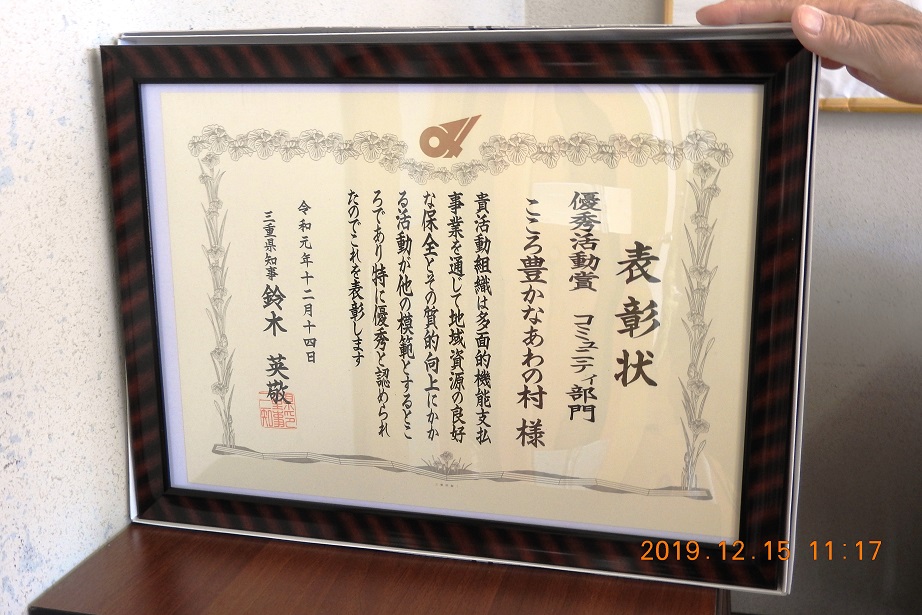 表彰状
優秀活動賞 コミュニティ部門
こころ豊かなあわの村 様
貴活動組織は多面的機能支払
事業を通じて地域資源の良好
な保全とその質的向上にかか
る活動が他の模範とするとこ
ろであり特に優秀と認められ
たのでこれを表彰します
令和元年十二月十四日
三重県知事 鈴木 英敬
2019.12.15 11:17